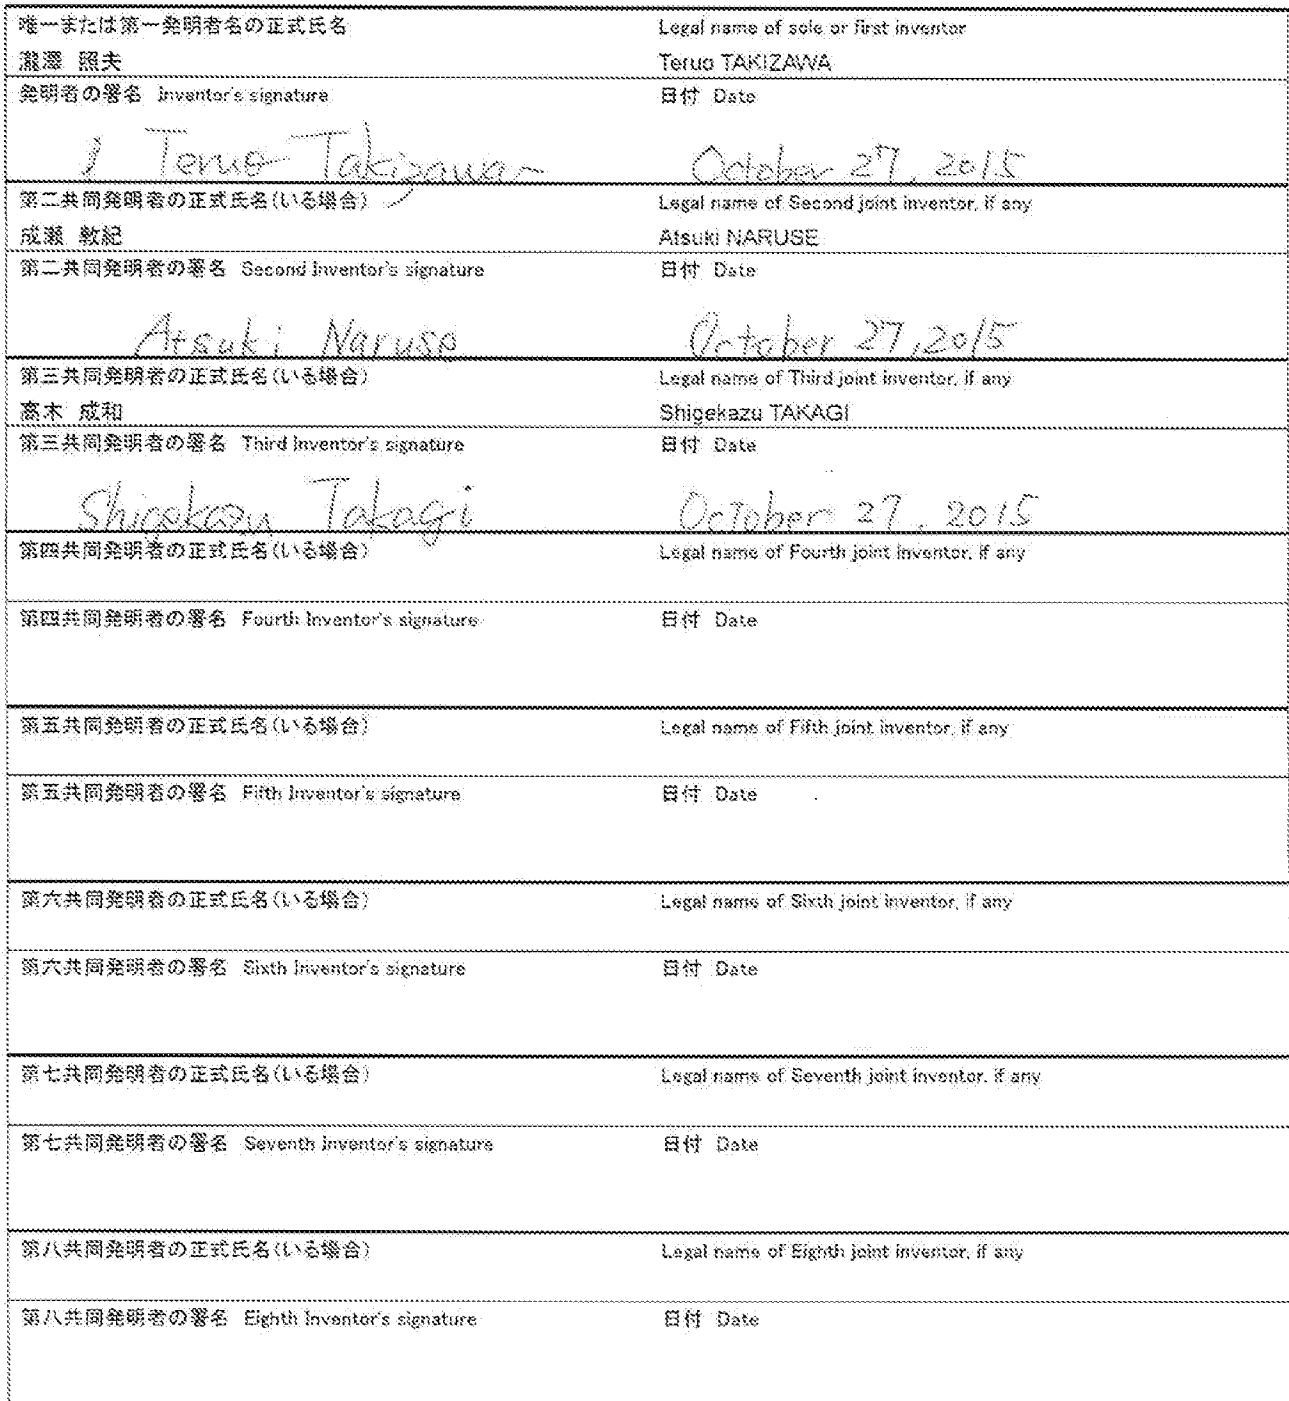 唯一または第一発明者名の正式氏名 Legal name of sole or first inventor
瀧澤 照夫 Teruo TAKIZAWA
発明者の署名 Inventor's signature 日付 Date
Teruo Takizawa October 27, 2015
第二共同発明者の正式氏名(いる場合) Legal name of Second joint inventor, if any
成瀬 敦紀 Atsuki NARUSE
第二共同発明者の署名 Second Inventor's signature 日付 Date
Atsuki Naruse October 27, 2015
第三共同発明者の正式氏名(いる場合) Legal name of Third joint inventor, if any
高木 成和 Shigekazu TAKAGI
第三共同発明者の署名 Third Inventor's signature 日付 Date
Shigekazu Takagi October 27, 2015
第四共同発明者の正式氏名(いる場合) Legal name of Fourth joint inventor, if any
第四共同発明者の署名 Fourth Inventor's signature 日付 Date
第五共同発明者の正式氏名(いる場合) Legal name of Fifth joint inventor, if any
第五共同発明者の署名 Fifth Inventor's signature 日付 Date
第六共同発明者の正式氏名(いる場合) Legal name of Sixth joint inventor, if any
第六共同発明者の署名 Sixth Inventor's signature 日付 Date
第七共同発明者の正式氏名(いる場合) Legal name of Seventh joint inventor, if any
第七共同発明者の署名 Seventh Inventor's signature 日付 Date
第八共同発明者の正式氏名(いる場合) Legal name of Eighth joint inventor, if any
第八共同発明者の署名 Eighth Inventor's signature 日付 Date